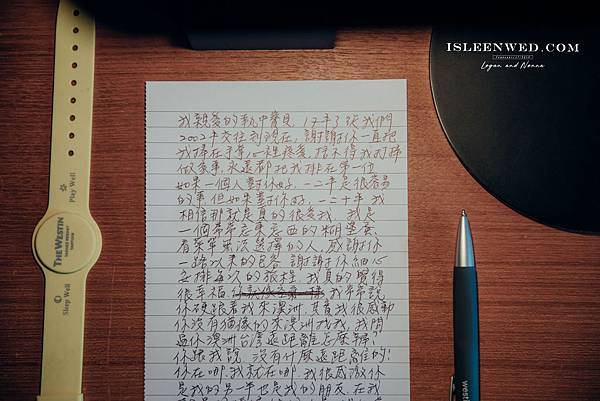 ISLEENWED.COM
Logan and Nonna
我親愛的執中寶貝 17年了 我們
2002年交往到現在,謝謝你一直把
我捧在手掌心裡疼愛,捨不得我打掃
做家事,永遠都把我排在第一位
如果一個人對你好,一二年是很容易
的事,但如果對你好,一二十年我
相信那就是真的很愛我,我是
一個常常忘東忘西的糊塗
有菜單無法選擇的人,感謝你
一路以來的包容,謝謝你細心
安排每次的旅程,我真的覺得
很幸福 我常常說
你硬跟著我來澳洲,其實我很感動
你沒有猶豫的來澳洲找我,我問
過你澳洲台灣遠距離怎麼辦?
你跟我說,沒有什麼遠距離的!
你在哪,我就在哪,我很感激你
是我的另一半也是我的朋友,在我
Play Well
THE WESTIN
Sleep Well
westin